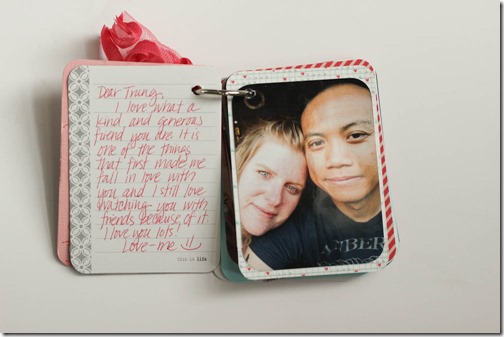 Dear Trung,
I love what a
kind and generous
friend you are. It is
one of the things
that first made me
fall in love with
you and I still love
watching you with
friends because of it.
I love you lots!
Love-me
this is life
AMBER